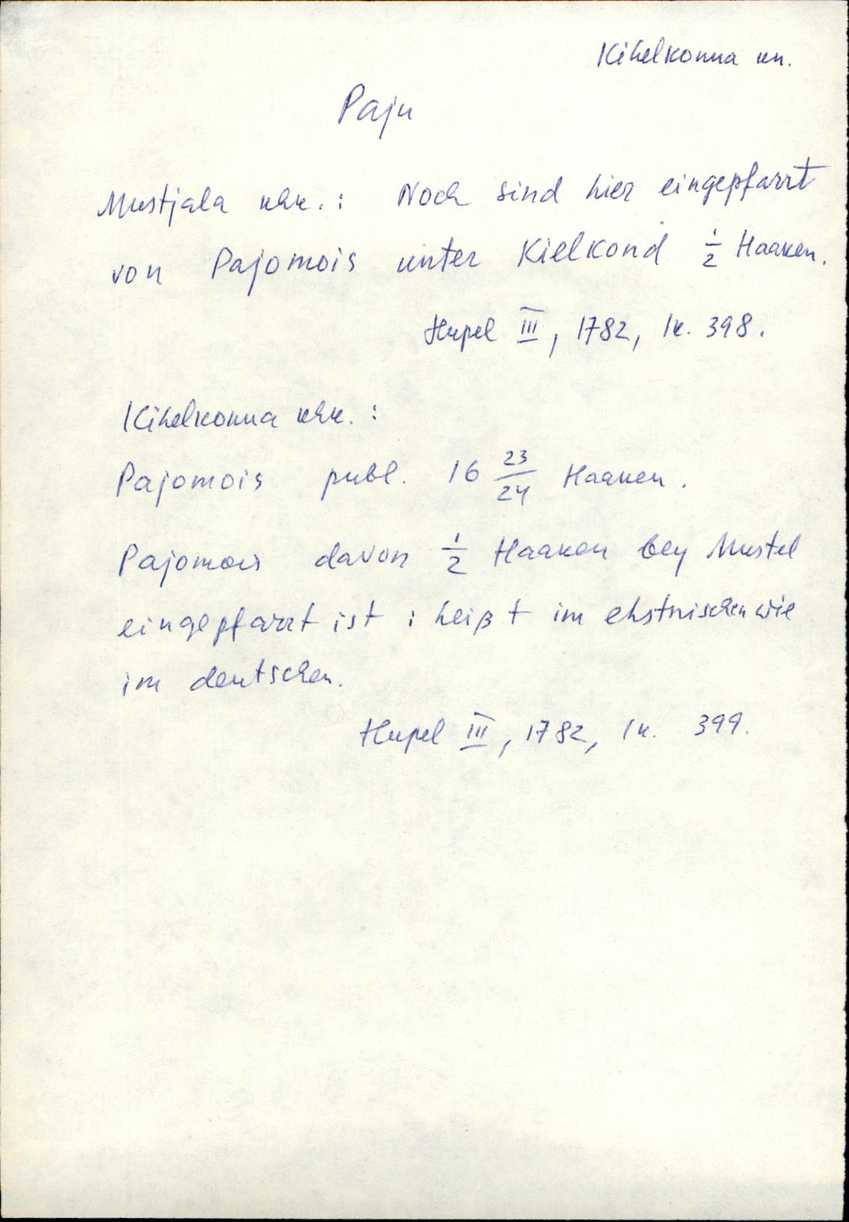 Kihelkonna kn.
Paju
Mustjala khk.: Noch sind hier eingepfarrt
von Pajomois unter Kielkond 1/2 Haaken.
Hupel III, 1782, lk. 398.
Kihelkonna khk. :
Pajomois publ. 16 23/24 Haaken.
Pajomois davon 1/2 Haaken bey Mustel
eingepfarrt ist : heißt im ehstnischen wie
im deutschen.
Hupel III, 1782, lk. 399.